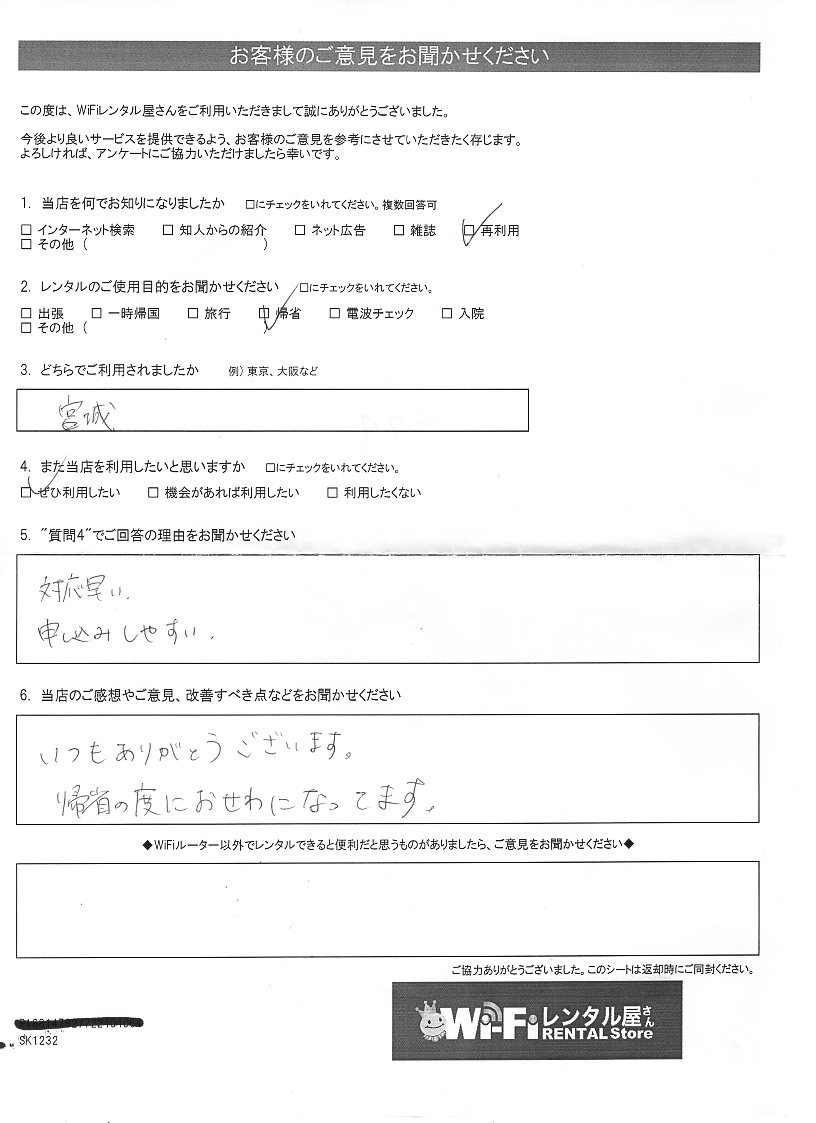 お客様のご意見をお聞かせください
この度は、WiFiレンタル屋さんをご利用いただきまして誠にありがとうございました。
今後より良いサービスを提供できるよう、お客様のご意見を参考にさせていただきたく存じます。
よろしければ、アンケートにご協力いただけましたら幸いです。
1. 当店を何でお知りになりましたか □にチェックをいれてください。複数回答可
□ インターネット検索 □ 知人からの紹介 □ ネット広告 □ 雑誌 ☑ 再利用
□ その他 ( )
2. レンタルのご使用目的をお聞かせください □にチェックをいれてください。
□ 出張 □ 一時帰国 □ 旅行 ☑ 帰省 □ 電波チェック □ 入院
□ その他 ( )
3. どちらでご利用されましたか 例) 東京、大阪など
宮城
4. また当店を利用したいと思いますか □にチェックをいれてください。
☑ ぜひ利用したい □ 機会があれば利用したい □ 利用したくない
5. "質問4"でご回答の理由をお聞かせください
対応早い.
申込みしやすい.
6. 当店のご感想やご意見、改善すべき点などをお聞かせください
いつもありがとうございます。
帰省の度におせわになってます。
◆WiFiルーター以外でレンタルできると便利だと思うものがありましたら、ご意見をお聞かせください◆
ご協力ありがとうございました。このシートは返却時にご同封ください。
SK1232
Wi-Fiレンタル屋さん
RENTAL Store